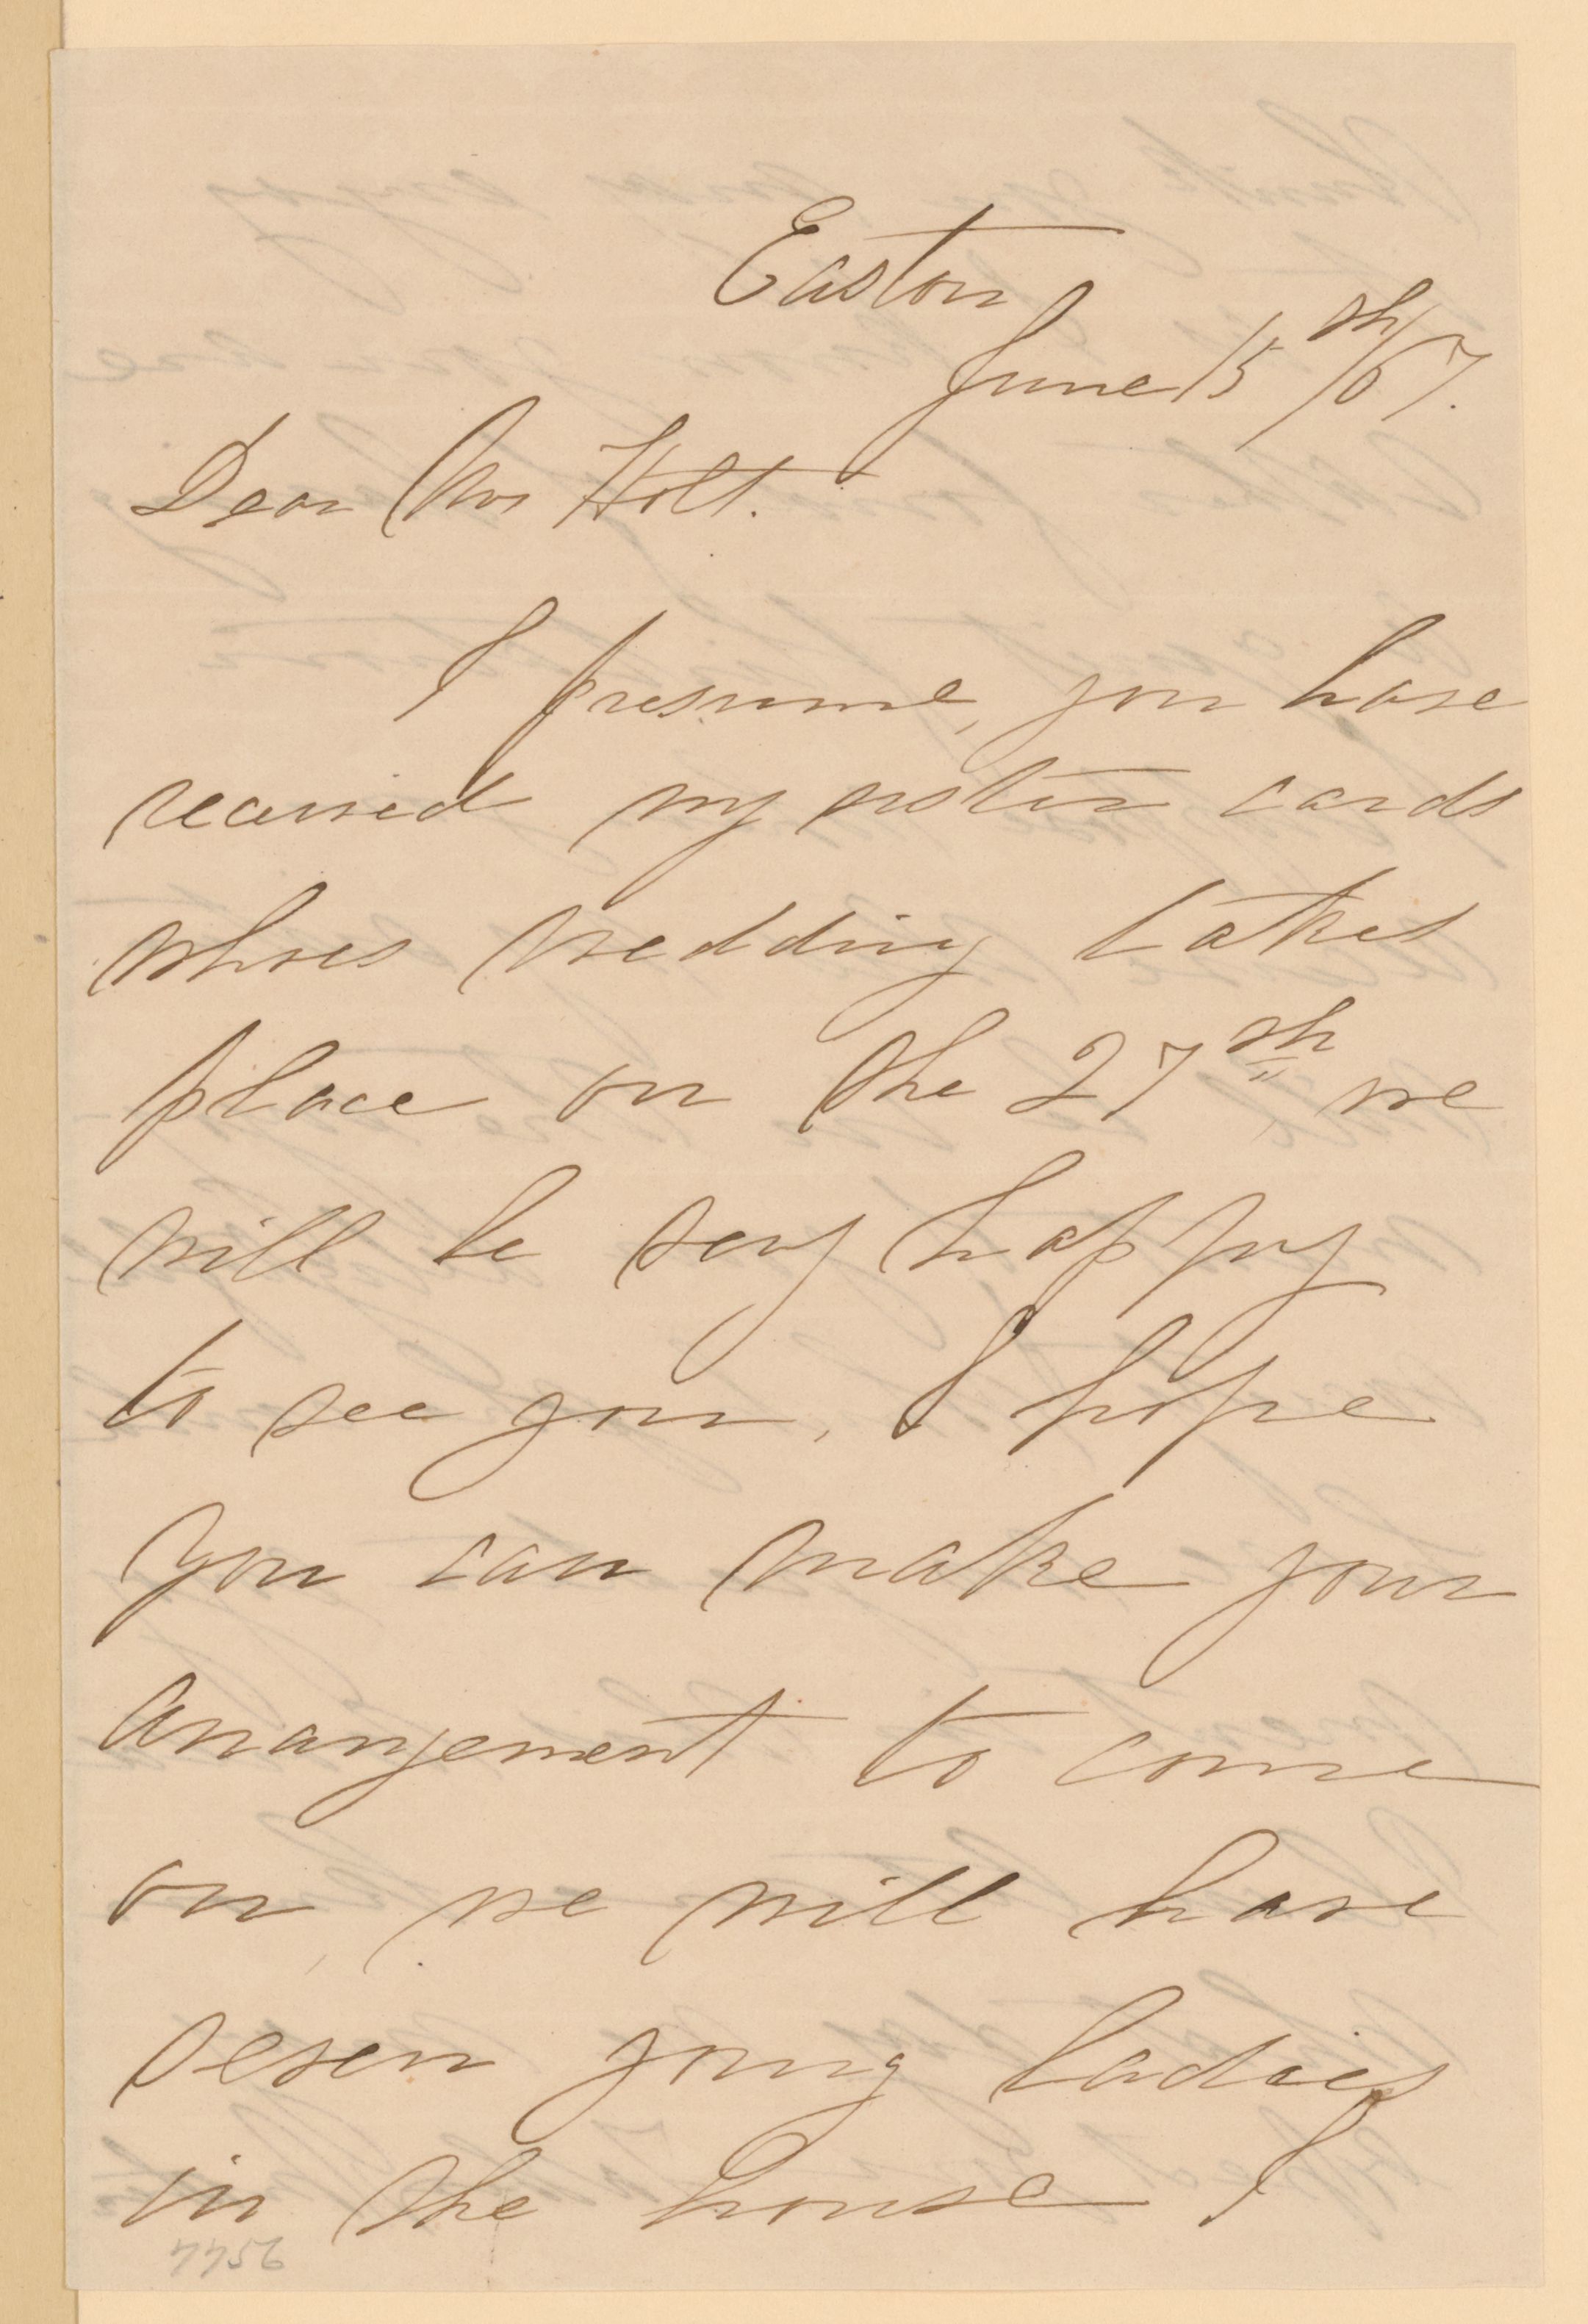 Easton
June 15th/67.
Dear Mr Holt.
I presume, you have
received my sister cards
whoes wedding takes
place on the 27th, we
will be very happy
to see you, I hope
you can make your
arrangement to come
on, we will have
seven young ladies
in the house I
7756